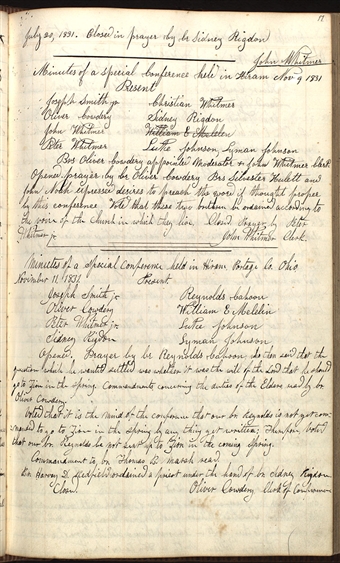 17
July 20, 1831. Closed in prayer by br Sidney Rigdon
John Whitmer
Minutes of a special Conference held in Hiram Nov 9 1831
Present
Joseph Smith jr. Christian Whitmer
Oliver Cowdery Sidney Rigdon
John Whitmer William E McLelen
Peter Whitmer Luke Johnson Lyman Johnson
Bro Oliver Cowdery appointed Moderator & John Whitmer Clerk
Opened prayer by br Oliver Cowdery Brs Silvester Hulett and
John Noah expressed desires to preach the word if thought proper
by this conference. Vote that these two brethren be ordained according to
the voice of the Church in which they live. Closed Prayer by Peter
Whitmer jr. John Whitmer Clerk.
Minutes of a special Conference held in Hiram Portage Co. Ohio
November 11 1831. Present
Joseph Smith jr. Reynolds Cahoon
Oliver Cowdery William E McLelen
Peter Whitmer jr. Luke Johnson
Sidney Rigdon Lyman Johnson
Opened, Prayer by br Reynolds Cahoon, he then said that the
question which he wanted settled was whether it was the will of the Lord that he should
go to Zion in the spring. Commandments concerning the duties of the Elders read by br
Oliver Cowdery.
Voted that it is the mind of the conference that our br Reynolds is not yet com-
manded to go to Zion in the spring by any thing yet written; Thereupon voted
that our br. Reynolds be not sent up to Zion in the coming Spring.
Commandment to br Thomas B. Marsh read.
Br. Harvey G. Redfield ordained a priest under the hand of br Sidney Rigdon
Closed. Oliver Cowdery Clerk of Conference